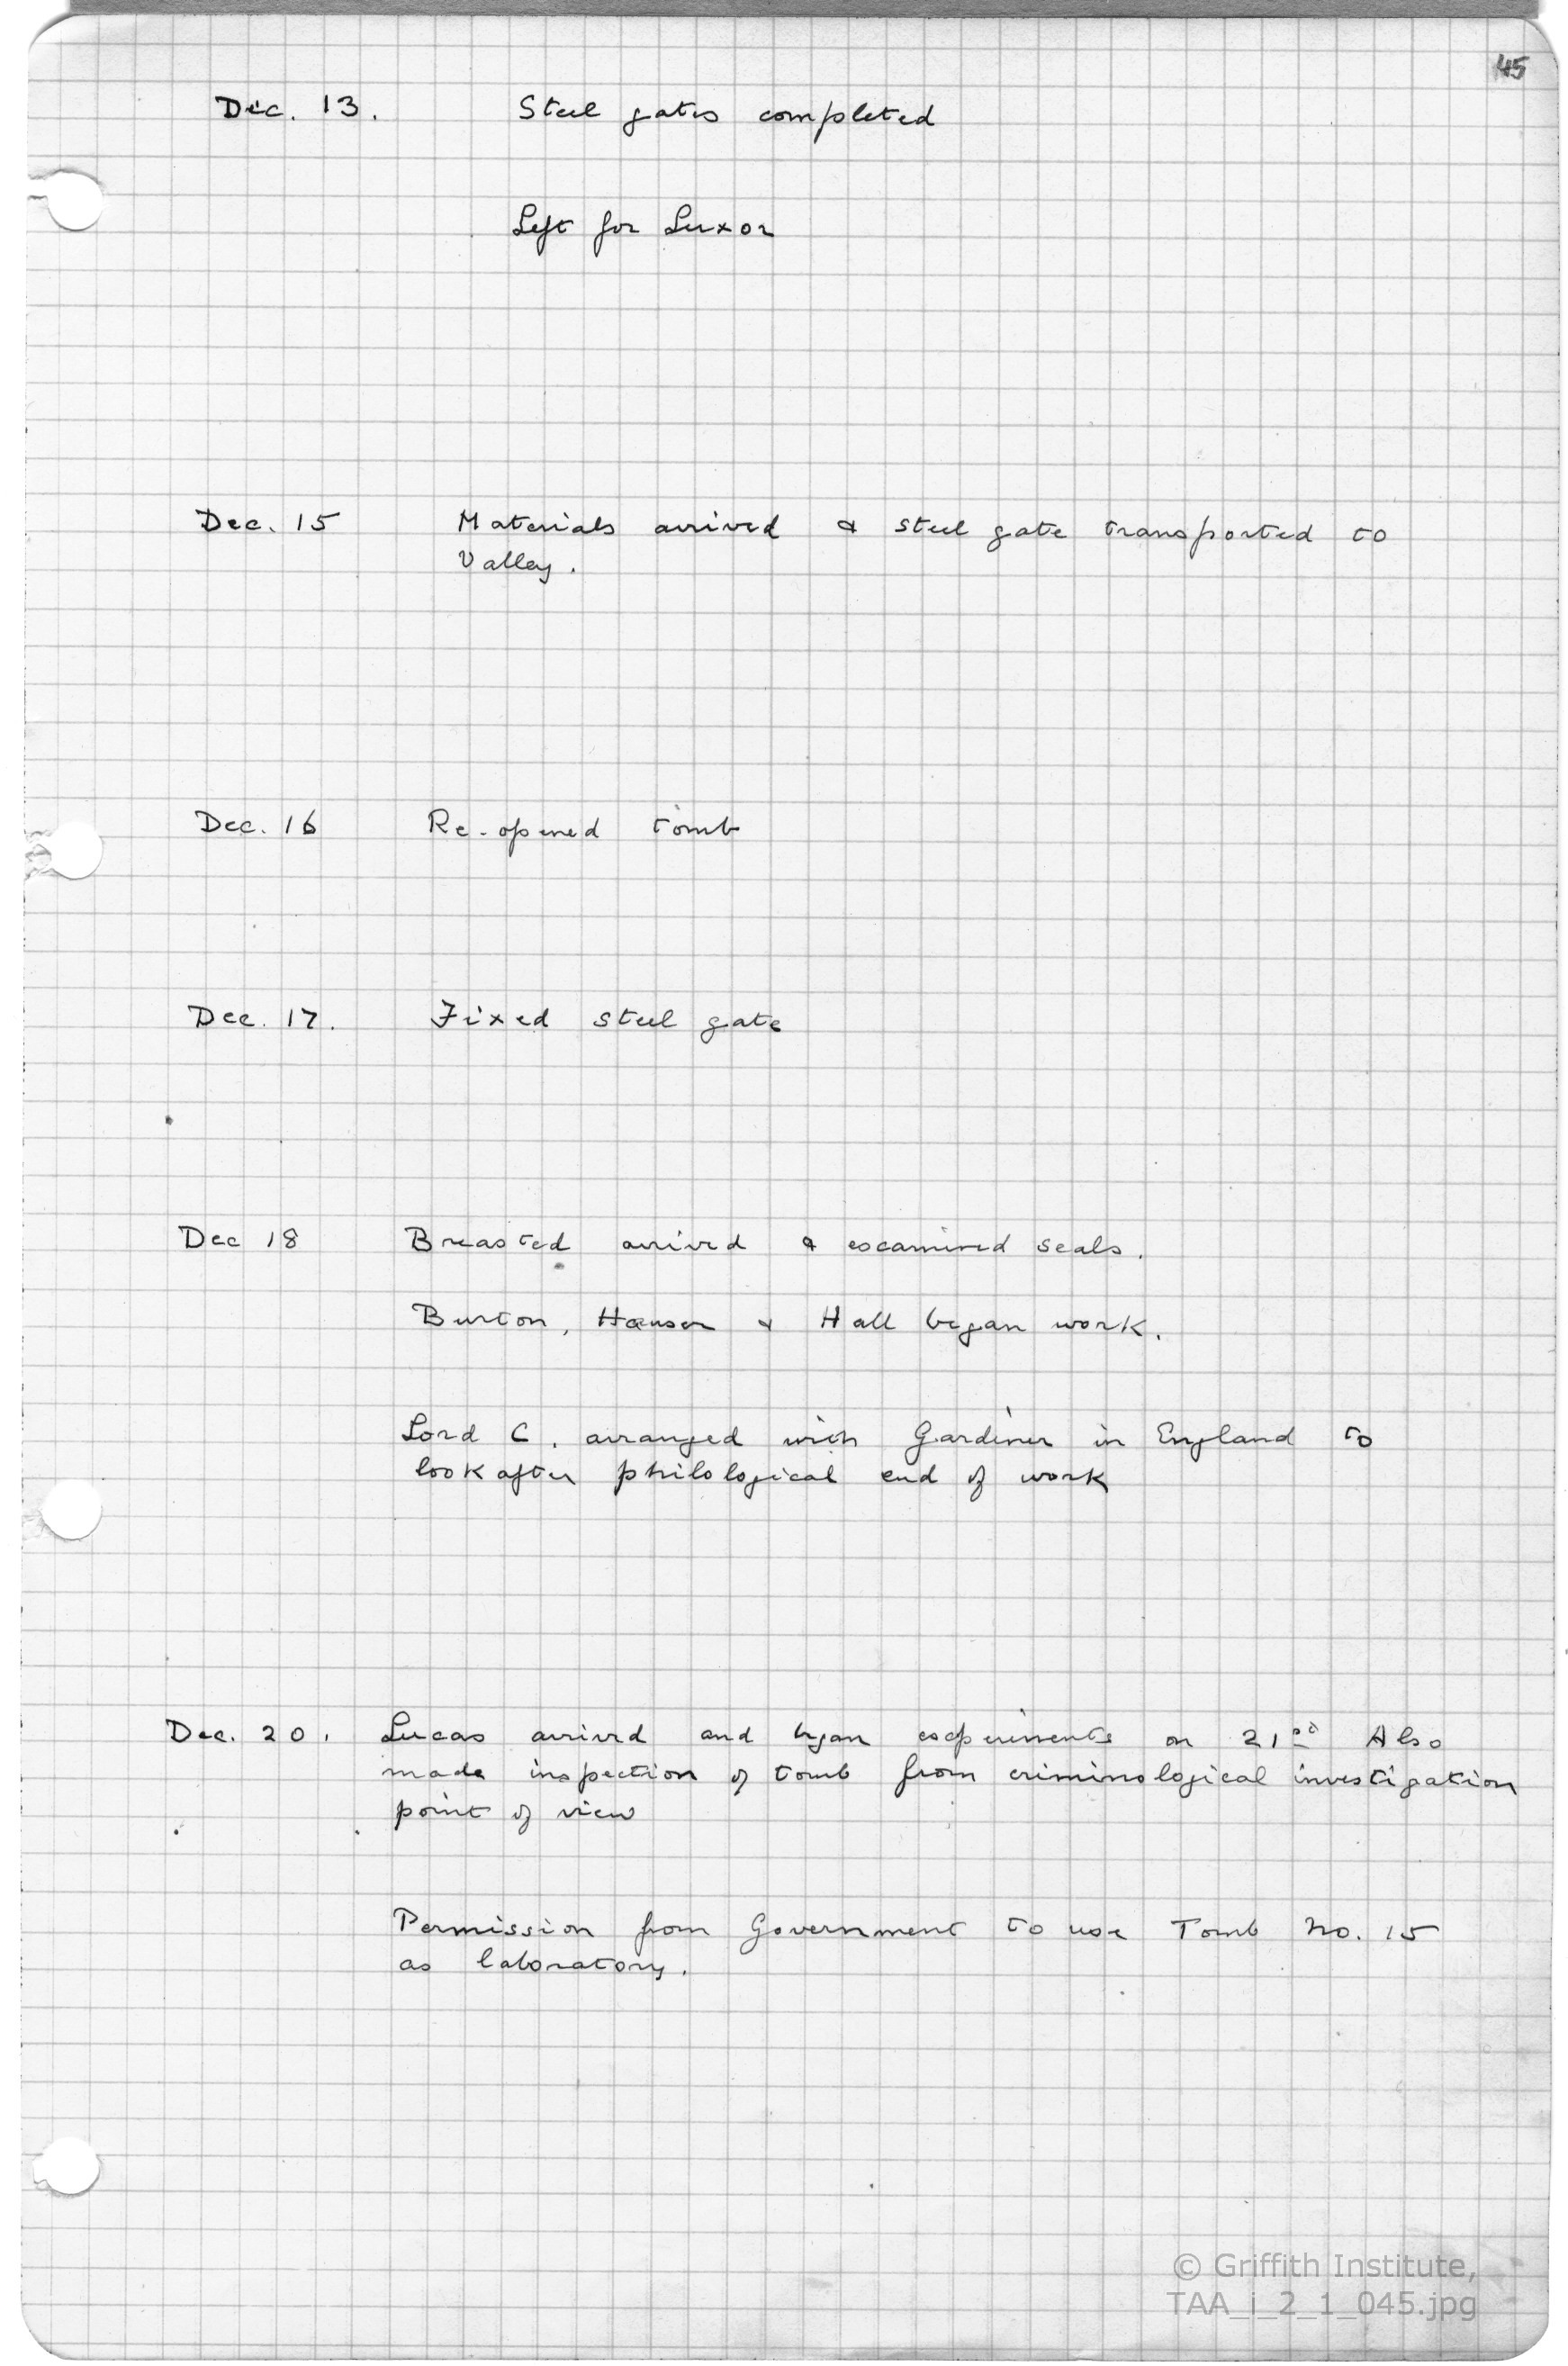 45
Dec. 13. Steel gates completed
Left for Luxor
Dec. 15 Materials arrived & steel gate transported to
Valley.
Dec. 16 Re-opened tomb
Dec. 17. Fixed steel gate
Dec 18 Breasted arrived & examined seals.
Burton, Hauser & Hall began work.
Lord C. arranged with Gardiner in England to
look after philological end of work
Dec. 20. Lucas arrived and began experiments on 21st Also
made inspection of tomb from criminological investigation
point of view
Permission from Government to use Tomb No. 15
as laboratory.
© Griffith Institute,
TAA_i_2_1_045.jpg